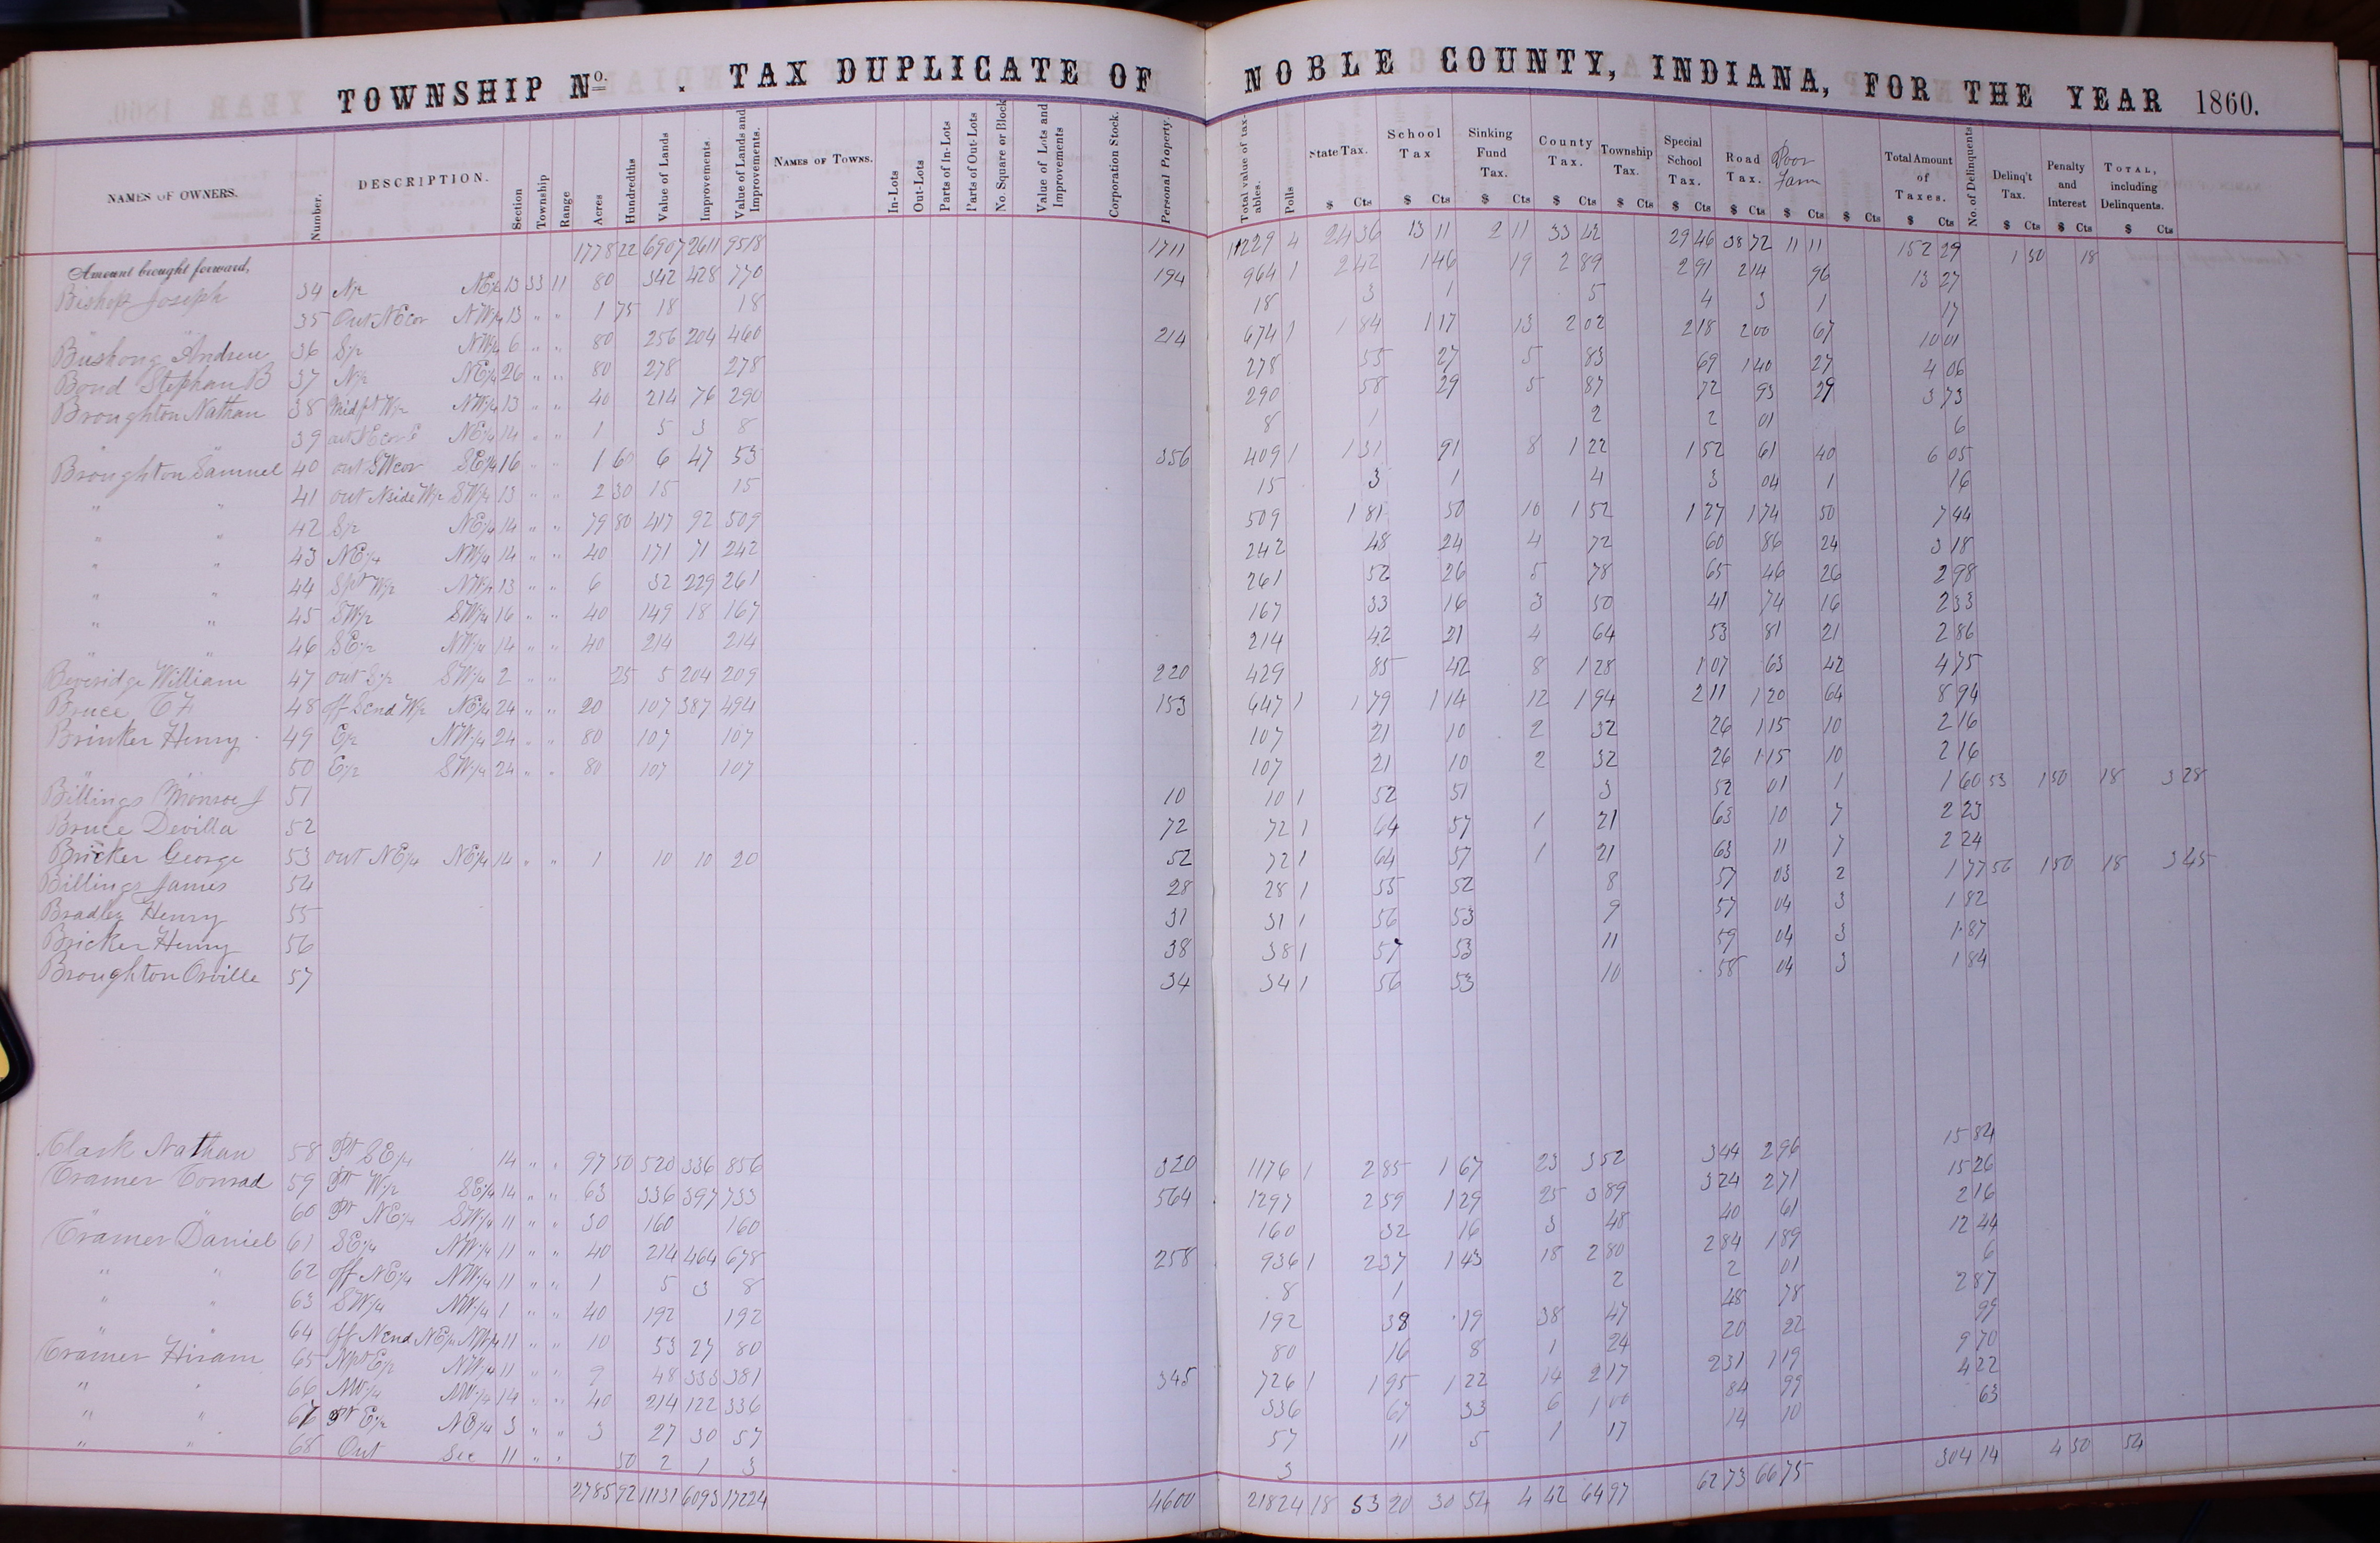 TOWNSHIP No. . TAX DUPLICATE OF NOBLE COUNTY, INDIANA, FOR THE YEAR 1860.
NAMES OF OWNERS. Number. DESCRIPTION. Section Township Range Acres Hundredths Value of Lands Improvements. Value of Lands and Improvements. NAMES OF TOWNS. In-Lots Out-Lots Parts of In-Lots Parts of Out-Lots No. Square or Block Value of Lots and Improvements Corporation Stock. Personal Property. Total value of taxables. Polls State Tax. School Tax Sinking Fund Tax. County Tax. Township Tax. Special School Tax. Road Tax. Poor Farm Total Amount of Taxes. No. of Delinquents Delinq't Tax. Penalty and Interest TOTAL, including Delinquents.
$ Cts $ Cts $ Cts $ Cts $ Cts $ Cts $ Cts $ Cts $ Cts $ Cts $ Cts $ Cts $ Cts
Amount brought forward, 1778 22 6907 2611 9518 1711 11229 4 24 36 13 11 2 11 33 42 29 46 38 72 11 11 152 29 1 50 18
Bishop Joseph 34 N½ NE¼ 13 33 11 80 342 428 770 194 964 1 2 42 1 46 19 2 89 2 91 2 14 96 13 27
" " 35 Out NE cor NW¼ 13 " " 1 75 18 18 18 3 1 5 4 3 1 17
Bushong Andrew 36 S½ NW¼ 6 " " 80 256 204 460 214 674 1 1 84 1 17 13 2 02 2 18 2 00 67 10 01
Bond Stephan B 37 N½ NE¼ 26 " " 80 278 278 278 55 27 5 83 69 1 40 27 4 06
Broughton Nathan 38 Mid pt W½ NW¼ 13 " " 40 214 76 290 290 58 29 5 87 72 93 29 3 73
" " 39 out NE cor NE¼ 14 " " 1 5 3 8 8 1 2 2 01 6
Broughton Samuel 40 out SW cor SE¼ 16 " " 1 60 6 47 53 356 409 1 1 31 91 8 1 22 1 52 61 40 6 05
" " 41 out N side W½ SW¼ 13 " " 2 30 15 15 15 3 1 4 3 04 1 16
" " 42 S½ NE¼ 14 " " 79 80 417 92 509 509 1 81 50 10 1 52 1 27 1 74 50 7 44
" " 43 NE¼ NW¼ 14 " " 40 171 71 242 242 48 24 4 72 60 86 24 3 18
" " 44 S pt W½ NW¼ 13 " " 6 32 229 261 261 52 26 5 78 65 46 26 2 98
" " 45 SW¼ SW¼ 16 " " 40 149 18 167 167 33 16 3 50 41 74 16 2 33
" " 46 SE¼ NW¼ 14 " " 40 214 214 214 42 21 4 64 53 81 21 2 86
Beveridge William 47 out S½ SW¼ 2 " " 25 5 204 209 220 429 85 42 8 1 28 1 07 63 42 4 75
Bruce 48 off S end W½ NE¼ 24 " " 20 107 387 494 153 647 1 1 79 1 14 12 1 94 2 11 1 20 64 8 94
Brinker Henry 49 E½ NW¼ 24 " " 80 107 107 107 21 10 2 32 26 1 15 10 2 16
" " 50 E½ SW¼ 24 " " 80 107 107 107 21 10 2 32 26 1 15 10 2 16
Billings Monroe J 51 10 10 1 52 51 3 52 01 1 1 60 53 1 50 18 3 28
Bruce Devilla 52 72 72 1 64 57 1 21 63 10 7 2 23
Bricker George 53 out NE¼ NE¼ 14 " " 1 10 10 20 52 72 1 64 57 1 21 63 11 7 2 24
Billings James 54 28 28 1 55 52 8 57 03 2 1 77 56 1 50 18 3 45
Bradley Henry 55 31 31 1 56 53 9 57 04 3 1 82
Bricker Henry 56 38 38 1 57 53 11 59 04 3 1 87
Broughton Orville 57 34 34 1 56 53 10 58 04 3 1 84
Clark Nathan 58 Pt SE¼ 14 " " 97 50 520 336 856 320 1176 1 2 85 1 67 23 3 52 3 44 2 96 15 84
Cramer Conrad 59 Pt W½ SE¼ 14 " " 63 336 397 733 564 1297 2 59 1 29 25 3 89 3 24 2 71 15 26
" " 60 Pt NE¼ SW¼ 11 " " 30 160 160 160 32 16 3 48 40 61 2 16
Cramer Daniel 61 SE¼ NW¼ 11 " " 40 214 464 678 258 936 1 2 37 1 43 18 2 80 2 84 1 89 12 44
" " 62 off NE¼ NW¼ 11 " " 1 5 3 8 8 1 2 2 01 6
" " 63 SW¼ NW¼ 1 " " 40 192 192 192 38 19 38 47 48 78 2 87
" " 64 off N end NE¼ NW¼ 11 " " 10 53 27 80 80 16 8 1 24 20 22 99
Cramer Hiram 65 N pt E½ NW¼ 11 " " 9 48 333 381 345 726 1 1 95 1 22 14 2 17 2 31 1 19 9 70
" " 66 NW¼ NW¼ 14 " " 40 214 122 336 336 67 33 6 1 00 84 99 4 22
" " 67 Pt E½ NE¼ 3 " " 3 27 30 57 57 11 5 1 17 14 10 63
" " 68 Out Sec 11 " " 50 2 1 3 3
2785 92 11131 6093 17224 4600 21824 18 53 20 30 54 4 42 64 97 62 73 66 75 304 14 4 50 54